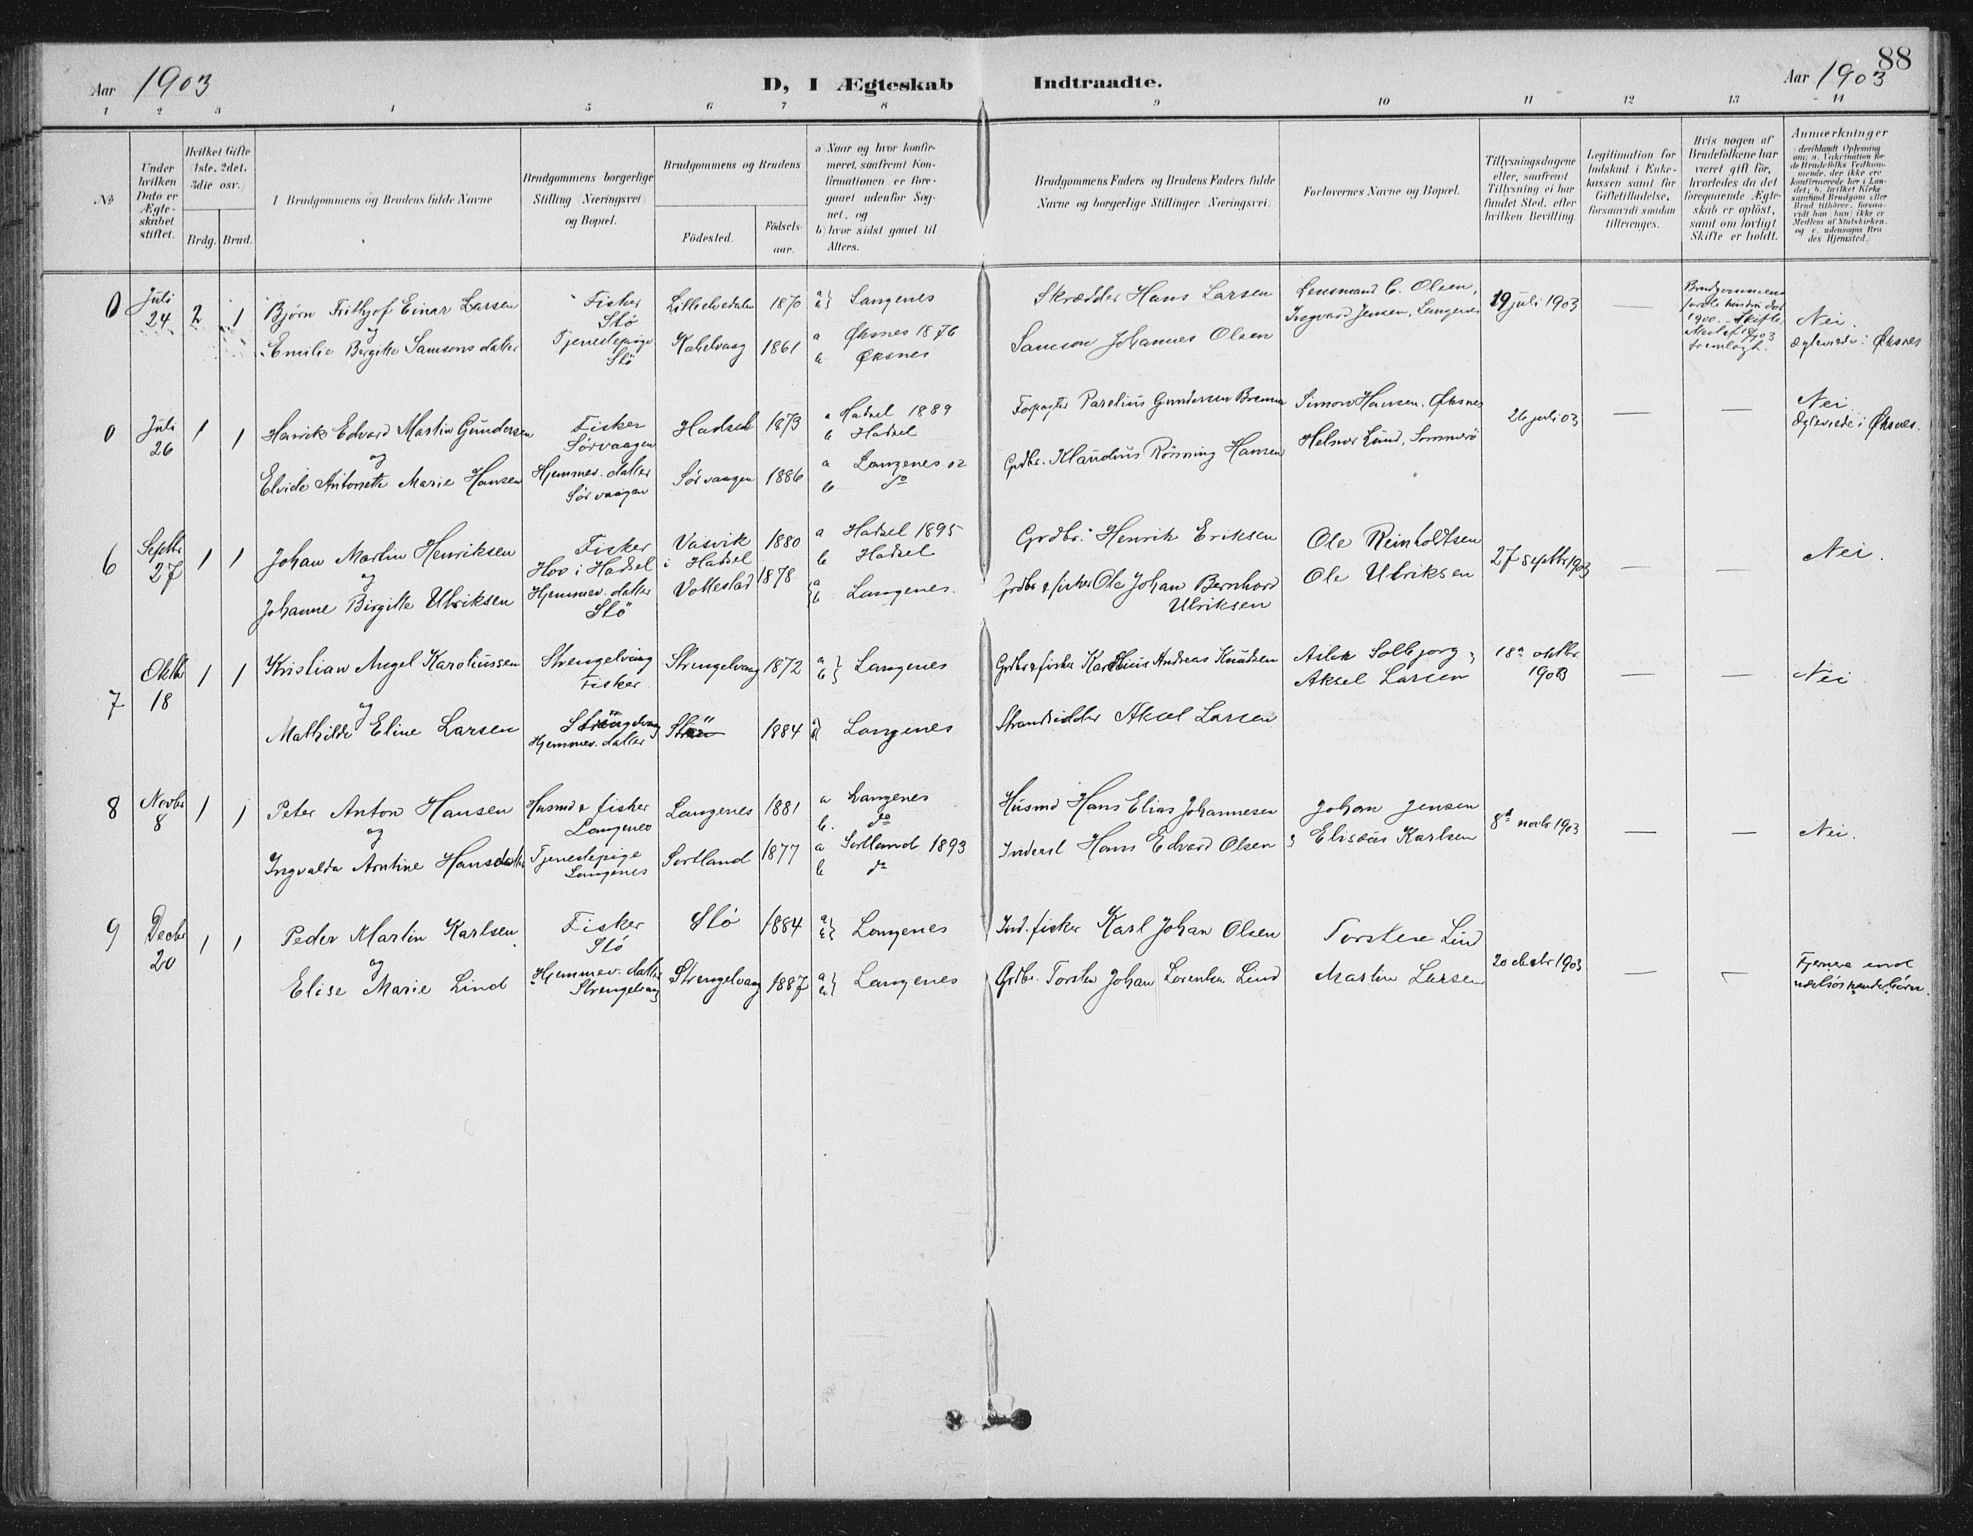 88
Aar 1903
D, I Ægteskab Indtraadte.
Aar 1903
1 2 3 4 5 6 7 8 9 10 11 12 13 14
No
Under hvilken Dato er Ægteskabet stiftet.
Hvilket Gifte (1ste, 2det, 3die osv.)
Brdg. Brud.
I Brudgommens og Brudens fulde Navne
Brudgommens borgerlige Stilling (Næringsvei) og Bopæl.
Brudgommens og Brudens
Födested.
Födselsaar.
a Naar og hvor konfirmeret, saafremt Konfirmationen er foregaaet udenfor Sognet, og
b) hvor sidst gaaet til Alters.
Brudgommens Faders og Brudens Faders fulde Navne og borgerlige Stillinger (Næringsvei).
Forlovernes Navne og Bopæl.
Tillysningsdagene eller, saafremt Tillysning ei har fundet Sted, efter hvilken Bevilling.
Legitimation for Indskud i Enkekassen samt for Giftetilladelse, forsaavidt saadan tiltrænges.
Hvis nogen af Brudefolkene har været gift för, hvorledes da det foregaaende Ægteskab er oplöst, samt om lovligt Skifte er holdt.
Anmærkninger
0 Juli 24 2 1
Bjørn Frithjof Einar Larsen
og
Emilie Birgitte Samsons datter
Fisker
Stø
Tjenestepige
Stø
1870
1861
a b } Langenes
a Øksnes 1876
b Øksnes
Skrædder Hans Larsen
Samson Johannes Olsen
Lensmand C. Olsen,
Ingvard Jensen, Langenes
19 juli 1903
—
Brudgommens
1900. Skifte
fremlagt.
Nei.
Ægteviede i Øksnes
0 Juli 26 1 1
Henrik Edvard Martin Gundersen
og
Elvide Antonette Marie Hansen
Fisker
Sørvaagen
Hjemmev. datter
Sørvaagen
Hadsel 1873
Sørvaagen 1886
a Hadsel 1889
b Hadsel
a Langenes 02
b do
Forpagter Parelius Gundersen
Grdbr. Klaudius Rønning Hansen
Simon Hansen, Øksnes
Helmer Lund, Sommerø
26 juli 03
— —
Nei
Ægteviede i Øksnes.
6 Septbr 27 1 1
Johan Martin Henriksen
og
Johanne Birgitte Ulriksen
Fisker
Hov i Hadsel
Hjemmev. datter
Stø
Vasvik
i Hadsel
1880
Vottestad 1878
a Hadsel 1895
b Hadsel
a b } Langenes.
Grdbr. Henrik Eriksen
Grdbr & fisker Ole Johan Bernhard
Ulriksen
Ole Reinholdtsen
Ole Ulriksen
27 septbr 1903
— —
Nei.
7 Oktbr 18 1 1
Kristian Angel Karoliussen
og
Mathilde Eline Larsen
Strengelvaag
Fisker
Hjemmev. datter
Strengelvaag 1872
1884
a b } Langenes
a b } Langenes
Grdbr & fisker Karolius Andreas Knudsen
Strandsidder Aksel Larsen
Aksel Larsen
18de oktbr
1903
— —
Nei
8 Novbr 8 1 1
Peter Anton Hansen
og
Ingvalda Arntine Hansdatter
Husmd & fisker
Langenes
Tjenestepige
Langenes
Langenes 1881
Sortland 1877
a Langenes
b. do
a Sortland 1893
b do
Husmd Hans Elias Johannesen
Inderst Hans Edvard Olsen
Johan Jensen
Eliseus Karlsen
8de novbr 1903
— —
Nei.
9 Decbr 20 1 1
Peder Martin Karlsen
og
Elise Marie Lind
Fisker
Stø
Hjemmev. datter
Strengelvaag
Stø 1884
Strengelvaag 1887
a b } Langenes
a b } Langenes
Ind. fisker Karl Johan Olsen
Grdbr. Torsten Johan Lorentsen Lind
Torsten Lind
Martin Larsen
20 decbr 1903
— —
Fjernere end